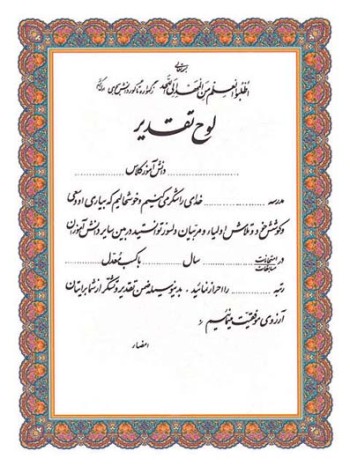 بسمه تعالی
اُطْلُبُوا الْعِلْمَ مِنَ الْمَهْدِ إِلَی اللَّحْدِ
لوح تقدیر
............ دانش آموز کلاس ............
مدرسه ............ خدای را شکر می‌کنیم و خوشحالیم که بیاری او و سعی
و کوشش خود و تلاش اولیاء و مربیان دلسوز توانستید در بین سایر دانش آموزان
در امتحانات مسابقات ............ سال ............ با کسب معدل ............
رتبه ............ را احراز نمائید . بدینوسیله ضمن تقدیر و تشکر از شما برایتان
آرزوی موفقیت مینمائیم
امضاء